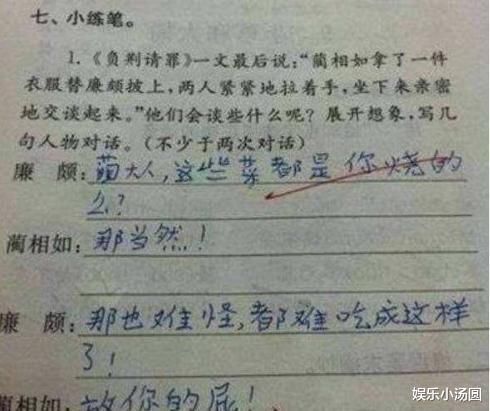 七、小练笔。
1.《负荆请罪》一文最后说:“蔺相如拿了一件
衣服替廉颇披上,两人紧紧地拉着手,坐下来亲密
地交谈起来。”他们会谈些什么呢?展开想象,写几
句人物对话。(不少于两次对话)
廉 颇:蔺大人,这些菜都是你烧的
么?
蔺相如:那当然!
廉 颇:那也难怪,都难吃成这样
了!
蔺相如:放你的屁!
娱乐小汤圆